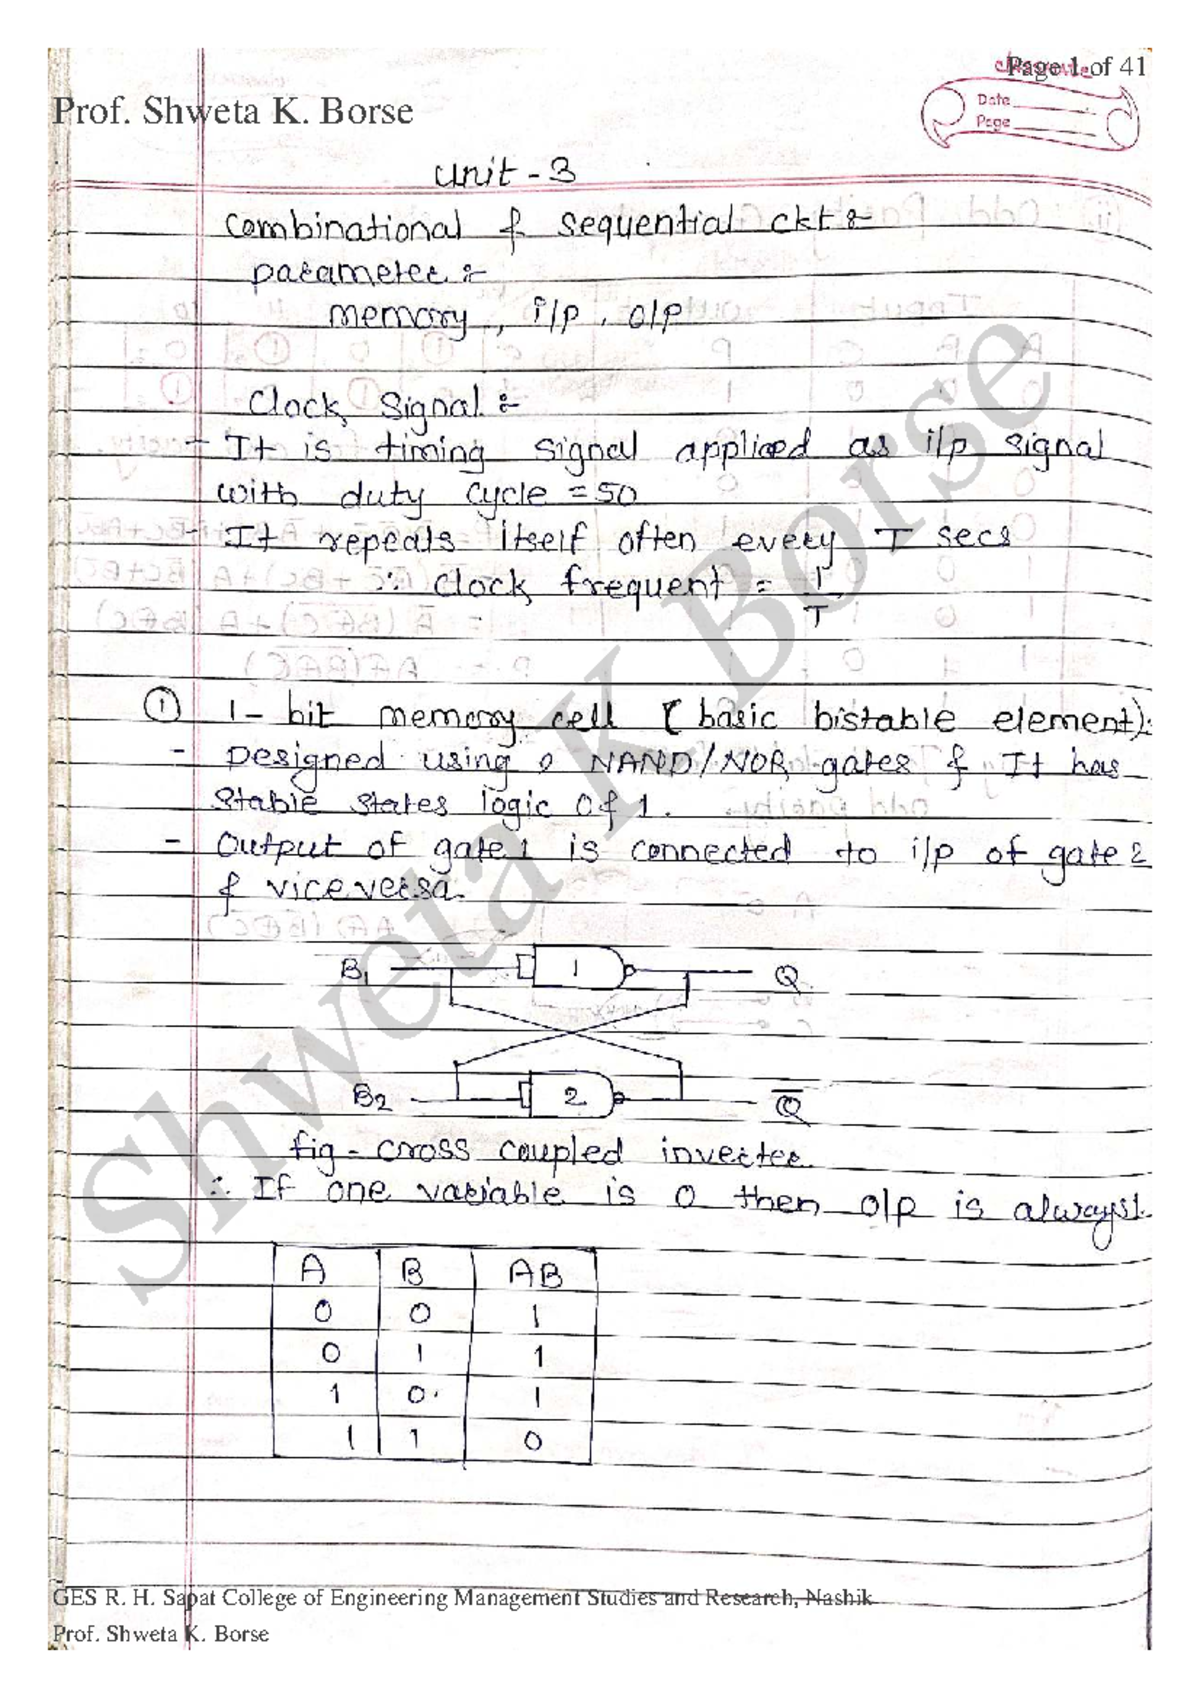 Page 1 of 41
classmate
Date
Page
Prof. Shweta K. Borse
Unit - 3
Combinational & Sequential ckt :-
parameter :-
memory, i/p, o/p
Clock Signal :-
- It is timing signal applied as i/p signal
with duty cycle = 50
- It repeats itself often every T secs
∴ Clock frequent = 1/T
① 1 - bit memory cell (basic bistable element):
- Designed using NAND/NOR gates & It has
stable states logic 0 & 1.
- Output of gate 1 is connected to i/p of gate 2
& viceversa.
B1 1 Q
B2 2 Q̅
fig - cross coupled inverter.
∴ If one variable is 0 then o/p is always 1.
A B AB
0 0 1
0 1 1
1 0 1
1 1 0
Shweta K Borse
GES R. H. Sapat College of Engineering Management Studies and Research, Nashik
Prof. Shweta K. Borse